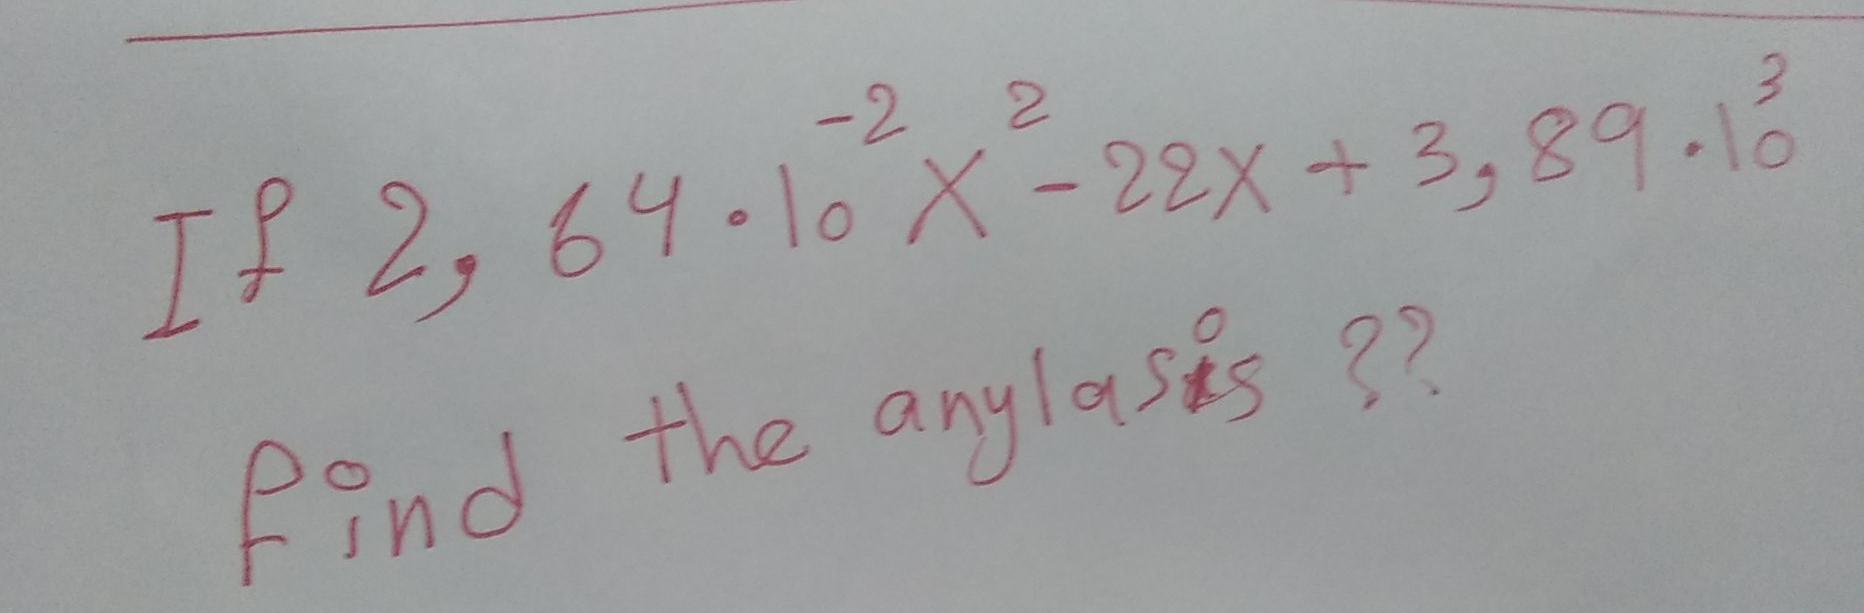 If 2,64.10^-2 x^2 - 22x + 3,89.10^3
find the anylasis ??